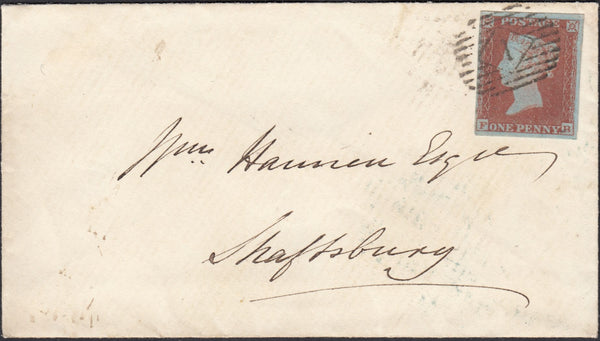 POSTAGE
ONE PENNY
Wm. Hannen Esqre
Shaftsbury